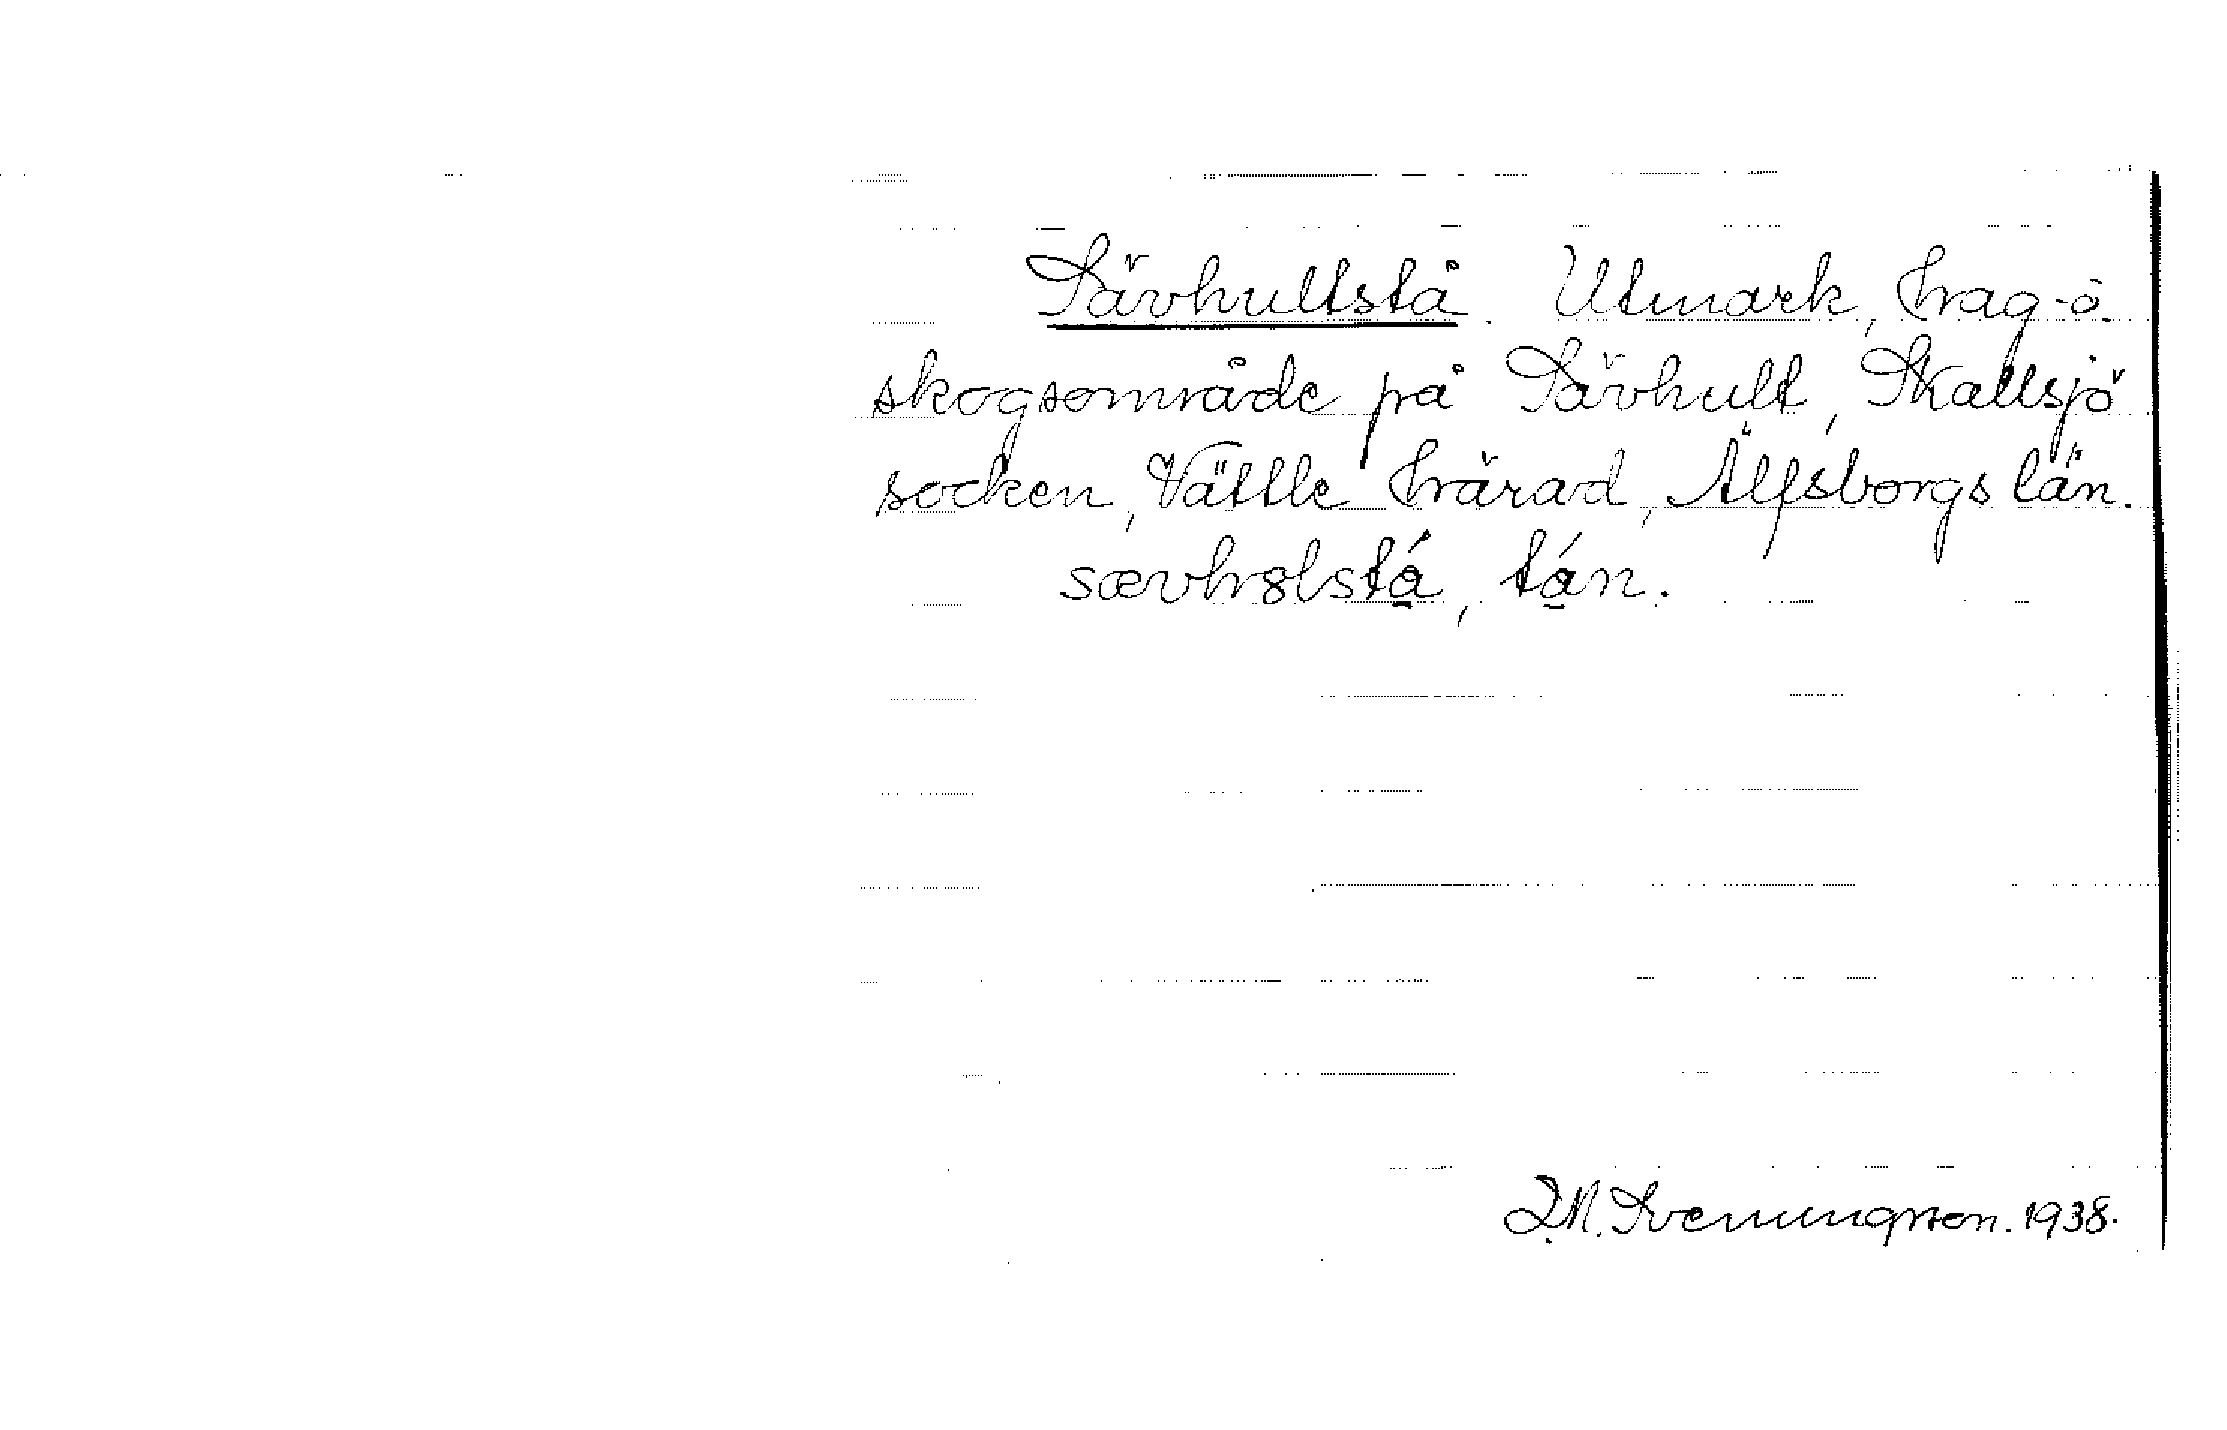 Sävhultstå. Utmark, hag- o.
skogsområde på Sävhult, Skallsjö
socken, Vättle härad, Älfsborgs län.
sævhɵlstá̱, tá̱n.
D.N. Svenungsson. 1938.